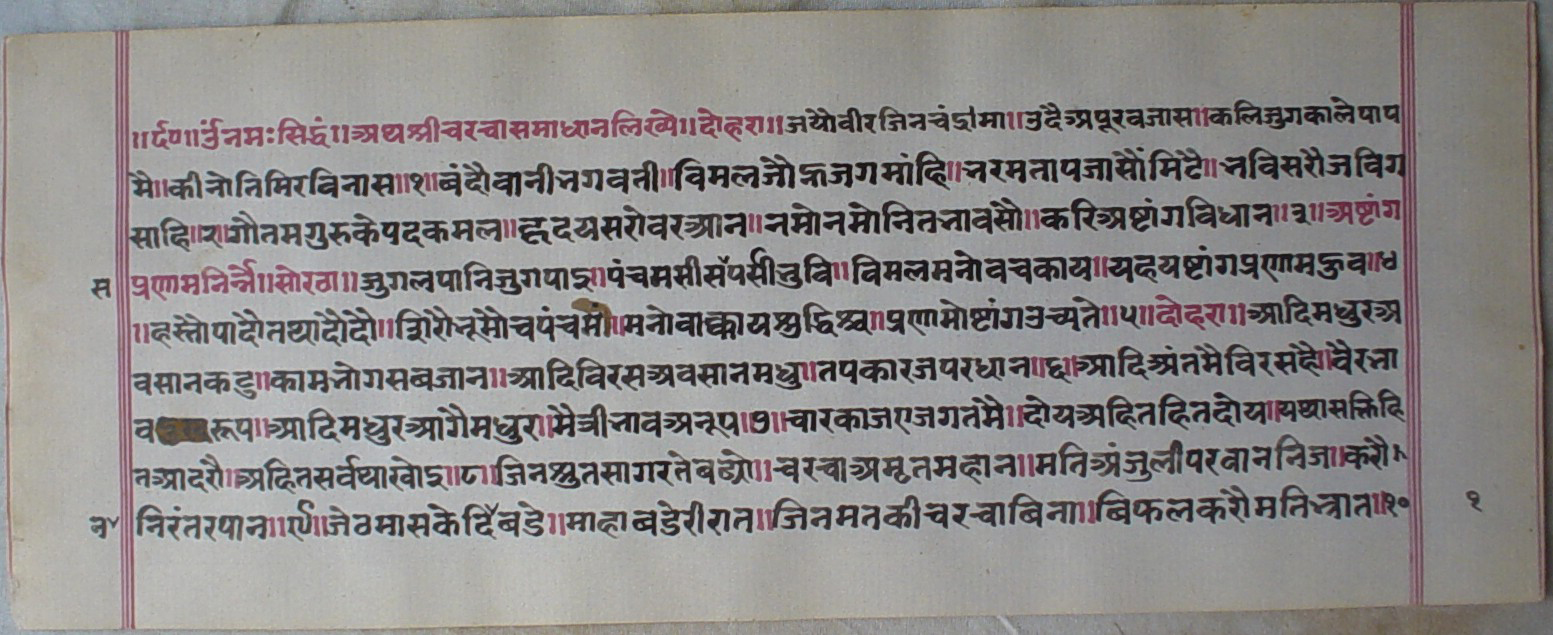 ॥र्द०॥ उँनमःसिद्धं॥अथश्रीचरचासमाधानलिख्ये॥दोहरा॥जयौवीरजिनचंद्रमा॥उदैअपूरवजास॥कलिजुगकालेपाप
मै॥कीनोतिमिरविनास॥१॥बंदौवानीभगवती॥विमलजौह्नजगमांहि॥भरमतापजासौंमिटै॥भविसरौजविग
साहि॥२॥गौतमगुरुकेपदकमल॥हृदयसरोवरआन॥नमोनमोनितभावसौ॥करिअष्टांगविधान॥३॥अष्टांग
स प्रणामनिर्नै॥सोरठा॥जुगलपानिजुगपाइ॥पंचमसीसपर्सीभुवि॥विमलमनोवचकाय॥यहयष्टांगप्रणामहुव॥४
॥हस्तौपादौतथादौदौ॥शिरौभूमोचपंचमौं॥मनोवाक्कायशुद्धिश्च॥प्रणामोष्टांगउच्यते॥५॥दोहरा॥आदिमधुरअ
वसानकटु॥कामभोगसबजान॥आदिविरसअवसानमधु॥तपकारजपरधान॥६॥आदिअंतमैविरसहै॥वैरभा
व रूप॥आदिमधुरआगैमधुरा॥मैत्रीभावअनूप॥७॥चारकाजएजगतमै॥दोयअहितहितदोय॥यथासक्तिहि
तआदरौ॥अहितसर्वथाखोइ॥८॥जिनश्रुतसागरतेबढ्यो॥चरचाअमृतमहान॥मतिअंजुलीपरवाननिज॥करौ
न४ निरंतरपान॥९॥जेठमासकेदिँबडे॥माहाबडेरीरात॥जिनमतकीचरचाबिना॥बिफलकरौमतिभ्रात॥१०
१